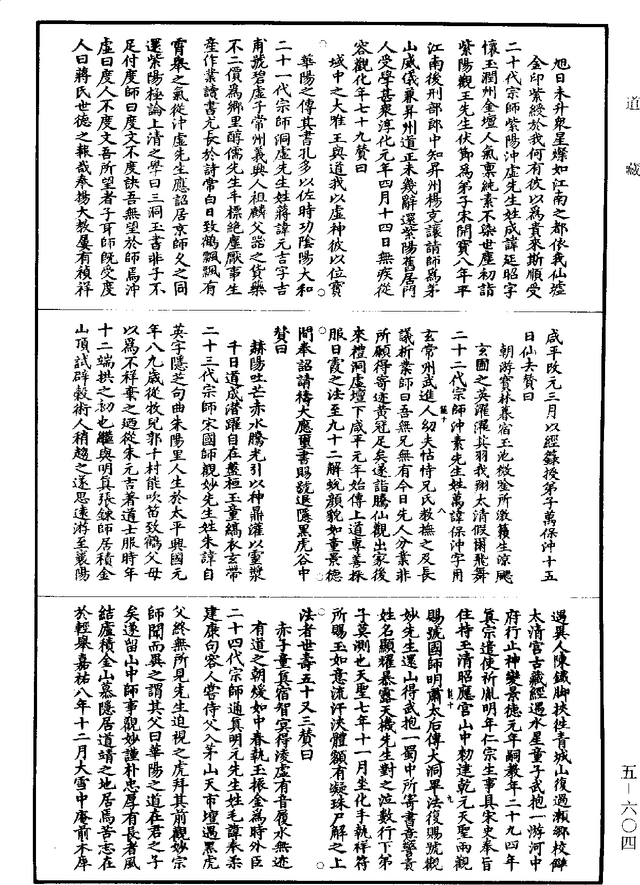 道藏
旭日未升衆星燦如江南之都依我仙墟
金印紫綬於我何有彼以爲貴來斯順受
二十代宗師紫陽沖虛先生姓成諱延昭字
懷玉潤州金壇人氣稟純素不染世塵初詣
紫陽觀王先生伏節爲弟子宋開寶八年平
江南後刑部郎中知昇州楊克讓請師爲茅
山威儀兼昇州道正未幾辭還紫陽舊居門
人受學甚衆淳化元年四月十四日無疾從
容觀化年七十九贊曰
域中之大雖王與道我以虛神彼以位寶
華陽之傳其書孔多以佐時功陰陽大和
二十一代宗師洞虛先生姓蔣諱元吉字吉
甫號碧虛子常州義興人祖麟父諮之貨藥
不二價爲鄉里醇儒先生丰標絕塵厭事生
產作業讀書尤長於詩常白日致鶴飄飄有
霄舉之氣從沖虛先生應詔居京師久之同
還紫陽極論上清之學曰三洞玉書非子不
足付度師曰度文不度訣吾無望於師爲沖
虛曰度人不度文吾所望者子耳師既受度
人曰蔣氏世德之報哉奉揚大教屢有禎祥
咸平改元三月以經籙授弟子萬保沖十五
日仙去贊曰
朝游寶林暮宿玉池微塗所激籟生涼颸
玄圃之英濯濯其羽我翔太清假爾飛舞
二十二代宗師沖素先生姓萬諱保沖字用
玄常州武進人幼失怙恃兄氏教撫之及長
議析業師曰吾無兄無有今日先人分業非
所願得寄迹黃冠足矣遂詣騰仙觀出家後
來禮洞虛壇下咸平元年始傳上道專善採
服日霞之法至九十二解蛻顏貌如童景德
間奉詔請禱大應璽書賜號退隱黑虎谷中
贊曰
赫陽吐芒赤水騰光引以神鼎濯以雲漿
千日道成潛躍自在盤桓玉童縞衣玄帶
二十三代宗師宋國師觀妙先生姓朱諱自
英字隱芝句曲朱陽里人生於太平興國元
年八九歲從牧兒郭千村能吹笛致鶴父母
以爲不祥棄之廼從朱元吉著道士服時年
十二端拱之初也繼與明眞張鍊師居積金
山頂試辟穀術人稍趨之遂思遠游至襄陽
遇異人陳鐵脚扶往青城山復過瀨鄉校讎
太清宮古藏經遇水星童子武抱一游河中
府行止神變景德元年嗣教年二十九四年
眞宗遣使祈胤明年仁宗生事具宋史奉旨
住持玉清昭應宮山中勅建乾元天聖兩觀
賜號國師明肅太后傳大洞畢法復賜號觀
妙先生還山得武抱一蜀中所寄書意警責
姓名顯耀暴露天機先生對之泣數行下弟
子莫測也天聖七年十一月坐化手執祥符
所賜玉如意流汗浹體額有凝珠尸解之上
法者世壽五十又三贊曰
赤子童真宿智冥得淩虛有音履水無迹
有道之朝綏如中春執玉振金爲時外臣
二十四代宗師通眞明元先生姓毛諱奉柔
建康句容人嘗侍父入茅山天市壇遇黑虎
父終無所見先生迫視之虎拜其前觀妙宗
師聞而異之謂其父曰華陽之道在君之子
矣遂留山中師事觀妙謹朴忠厚有長者風
結廬積金山慕隱居道靖之地居焉苦志在
於輕舉嘉祐八年十二月大雪中庵前木犀
五－六〇四